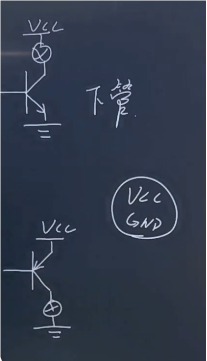 VCC
下管.
VCC
GND
VCC